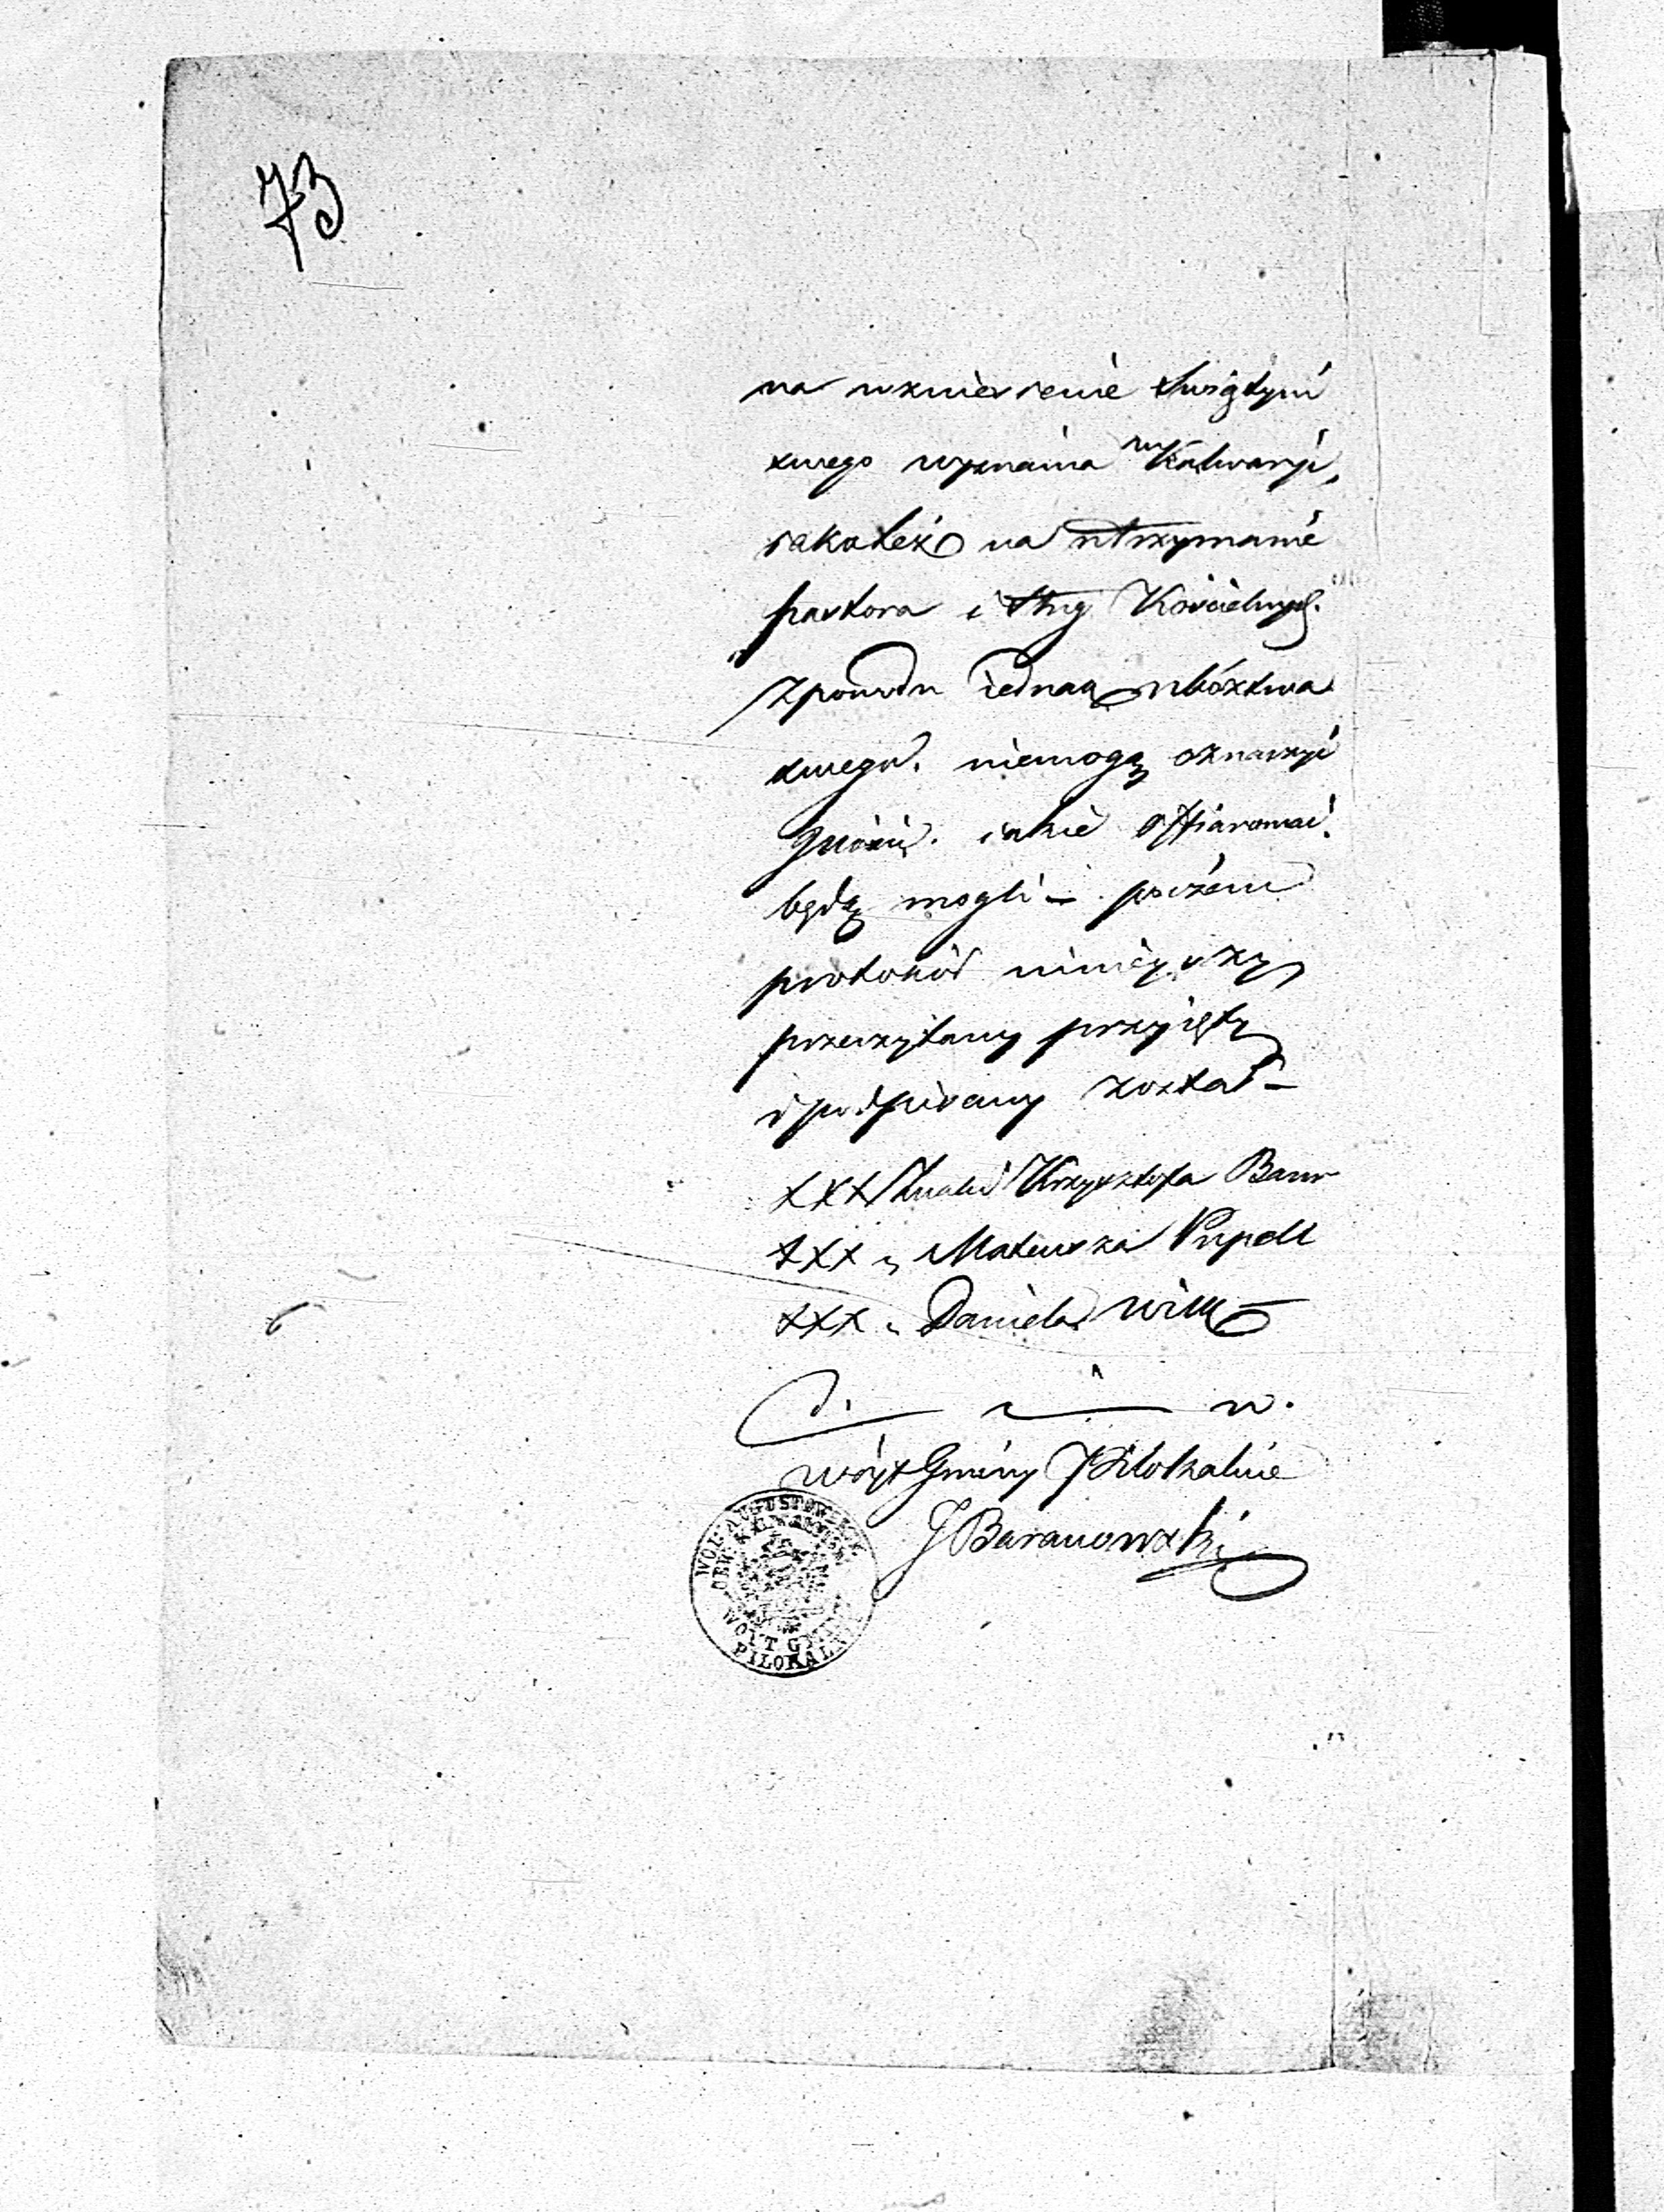 73
na wzniesienie Swiątyni
swego wyznania w Kalwaryi,
iakoteż na utrzymanie
pastora i sług Kościelnych.
Z powodu iednak ubóstwa
swego. niemogą oznaczyć
ilości. iakie offiarować
będą mogli – poczém
protokół ninieyszy
przeczytany przyięty
i podpisany został –
XXX Znaki Krzysztofa Baur
XXX „ Mateusza Pupelt
XXX „ Daniela Wilk
Woyt Gminy Piłokalnie
J Baranowski
WOJ: AUGUSTOWSKIE
OBW: KALWARYJSKI
WOYT G
PILOKAL